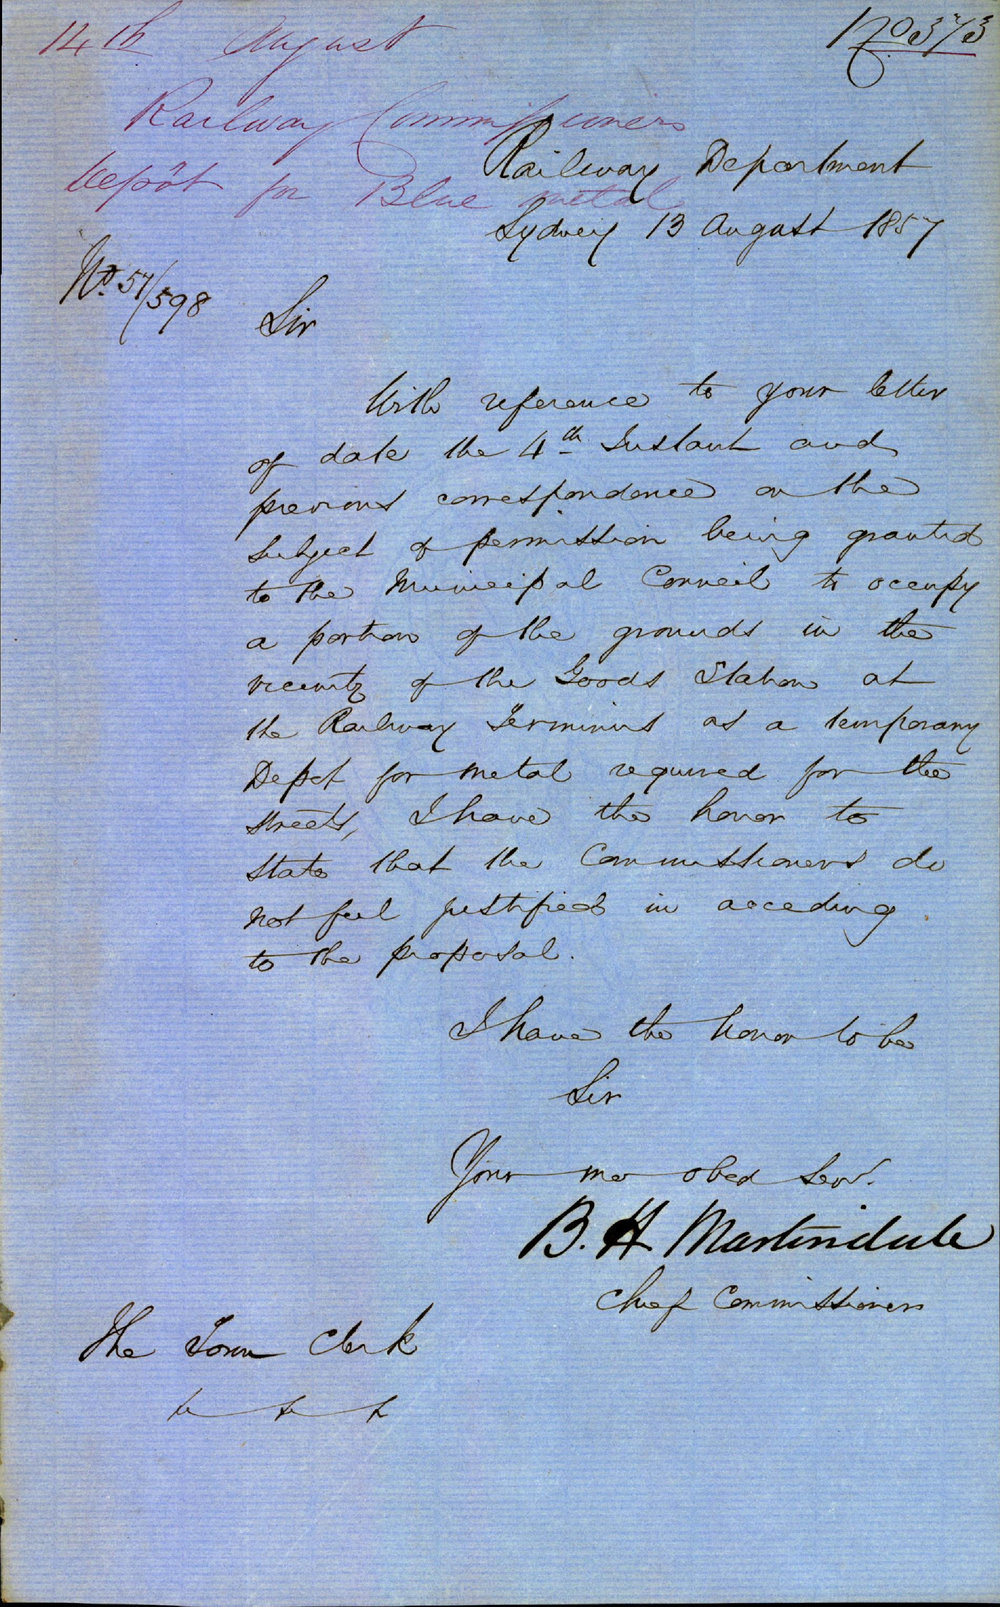 14th August
No 373
Railway Commissioners
Depôt for Blue metal
Railway Department
Sydney 13 August 1857
No. 57/598
Sir
With reference to your letter
of date the 4th Instant and
previous correspondence on the
subject of permission being granted
to the Municipal Council to occupy
a portion of the grounds in the
vicinity of the Goods Station at
the Railway Terminus as a temporary
Depot for metal required for the
streets, I have the honor to
state that the Commissioners do
not feel justified in acceding
to the proposal.
I have the honor to be
Sir
Your mo obed Servt.
B. H. Martindale
Chief Commissioner
The Town Clerk